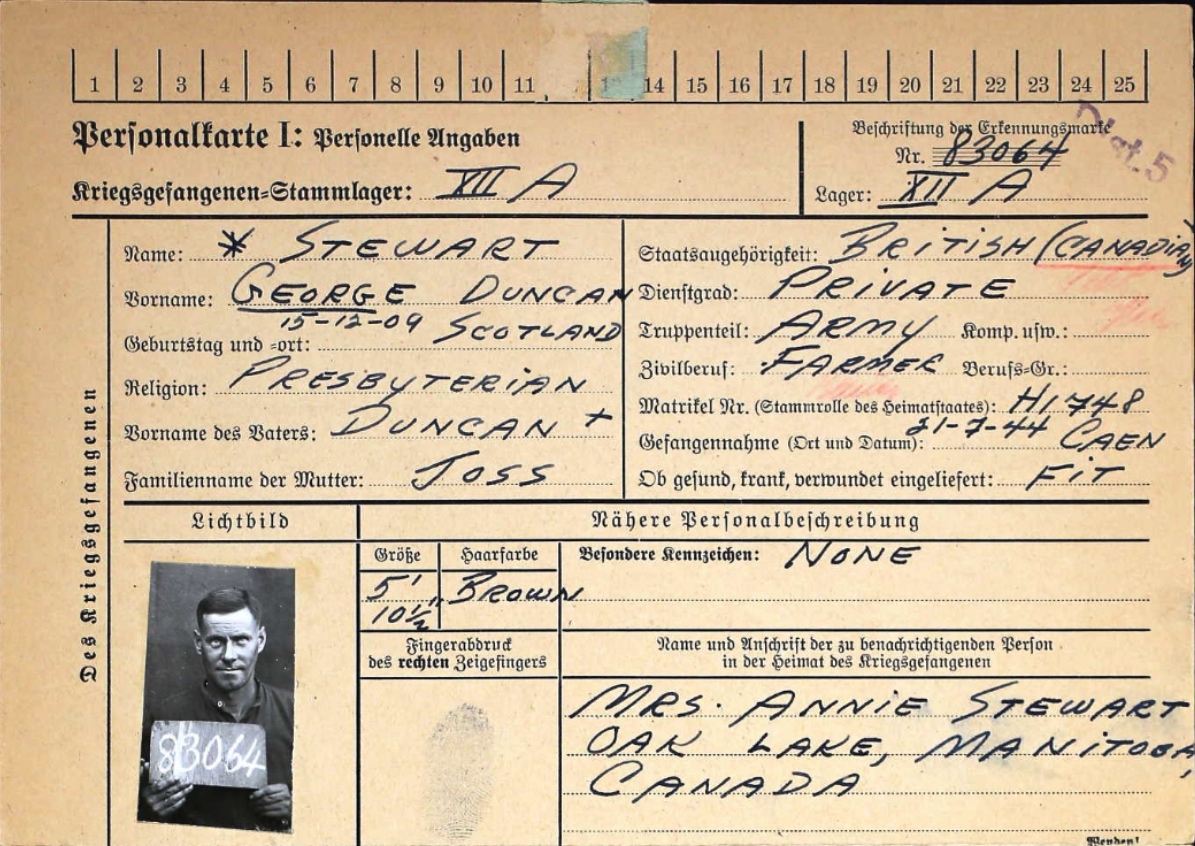 1 2 3 4 5 6 7 8 9 10 11 14 15 16 17 18 19 20 21 22 23 24 25
Personalkarte I: Personelle Angaben
Kriegsgefangenen=Stammlager: XII A
Beschriftung der Erkennungsmarke
Nr. 83064
Lager: XII A
Des Kriegsgefangenen
Name: * STEWART
Vorname: GEORGE DUNCAN
Geburtstag und =ort: 15-12-09 SCOTLAND
Religion: PRESBYTERIAN
Vorname des Vaters: DUNCAN +
Familienname der Mutter: JOSS
Staatsangehörigkeit: BRITISH (CANADIAN)
Dienstgrad: PRIVATE
Truppenteil: ARMY Komp. usw.:
Zivilberuf: FARMER Berufs=Gr.:
Matrikel Nr. (Stammrolle des Heimatstaates): H1748
Gefangennahme (Ort und Datum): 21-7-44 CAEN
Ob gesund, krank, verwundet eingeliefert: FIT
Lichtbild
Nähere Personalbeschreibung
Größe Haarfarbe
5' 10½" BROWN
Besondere Kennzeichen: NONE
Fingerabdruck
des rechten Zeigefingers
Name und Anschrift der zu benachrichtigenden Person
in der Heimat des Kriegsgefangenen
MRS. ANNIE STEWART
OAK LAKE, MANITOBA,
CANADA
83064
Wenden!